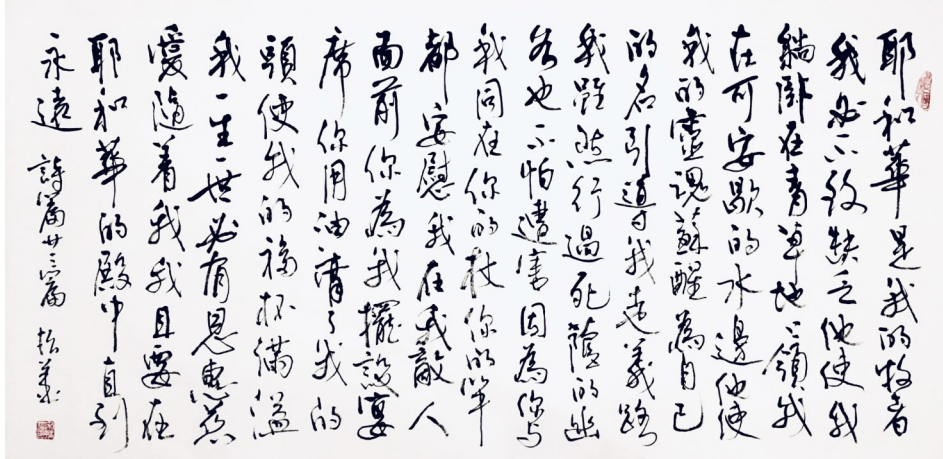 耶和華是我的牧者
我必不致缺乏他使我
躺臥在青草地上領我
在可安歇的水邊他使
我的靈魂蘇醒為自己
的名引導我走義路
我雖然行過死蔭的幽
谷也不怕遭害因為你與
我同在你的杖你的竿
都安慰我在我敵人
面前你為我擺設宴
席你用油膏了我的
頭使我的福杯滿溢
我一生一世必有恩惠慈
愛隨着我我且要在
耶和華的殿中直到
永遠 詩篇廿三篇